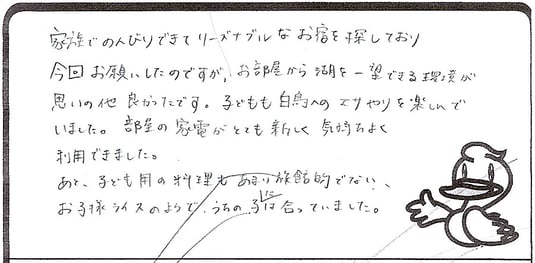 家族でのんびりできてリーズナブルなお宿を探しており
今回お願いしたのですが、お部屋から湖を一望できる環境が
思いの他良かったです。子どもも白鳥へのエサやりを楽しんで
いました。部屋の家電がとても新しく気持ちよく
利用できました。
あと、子ども用の料理もあまり旅館的でない、
お子様ライスのようで、うちの子には合っていました。